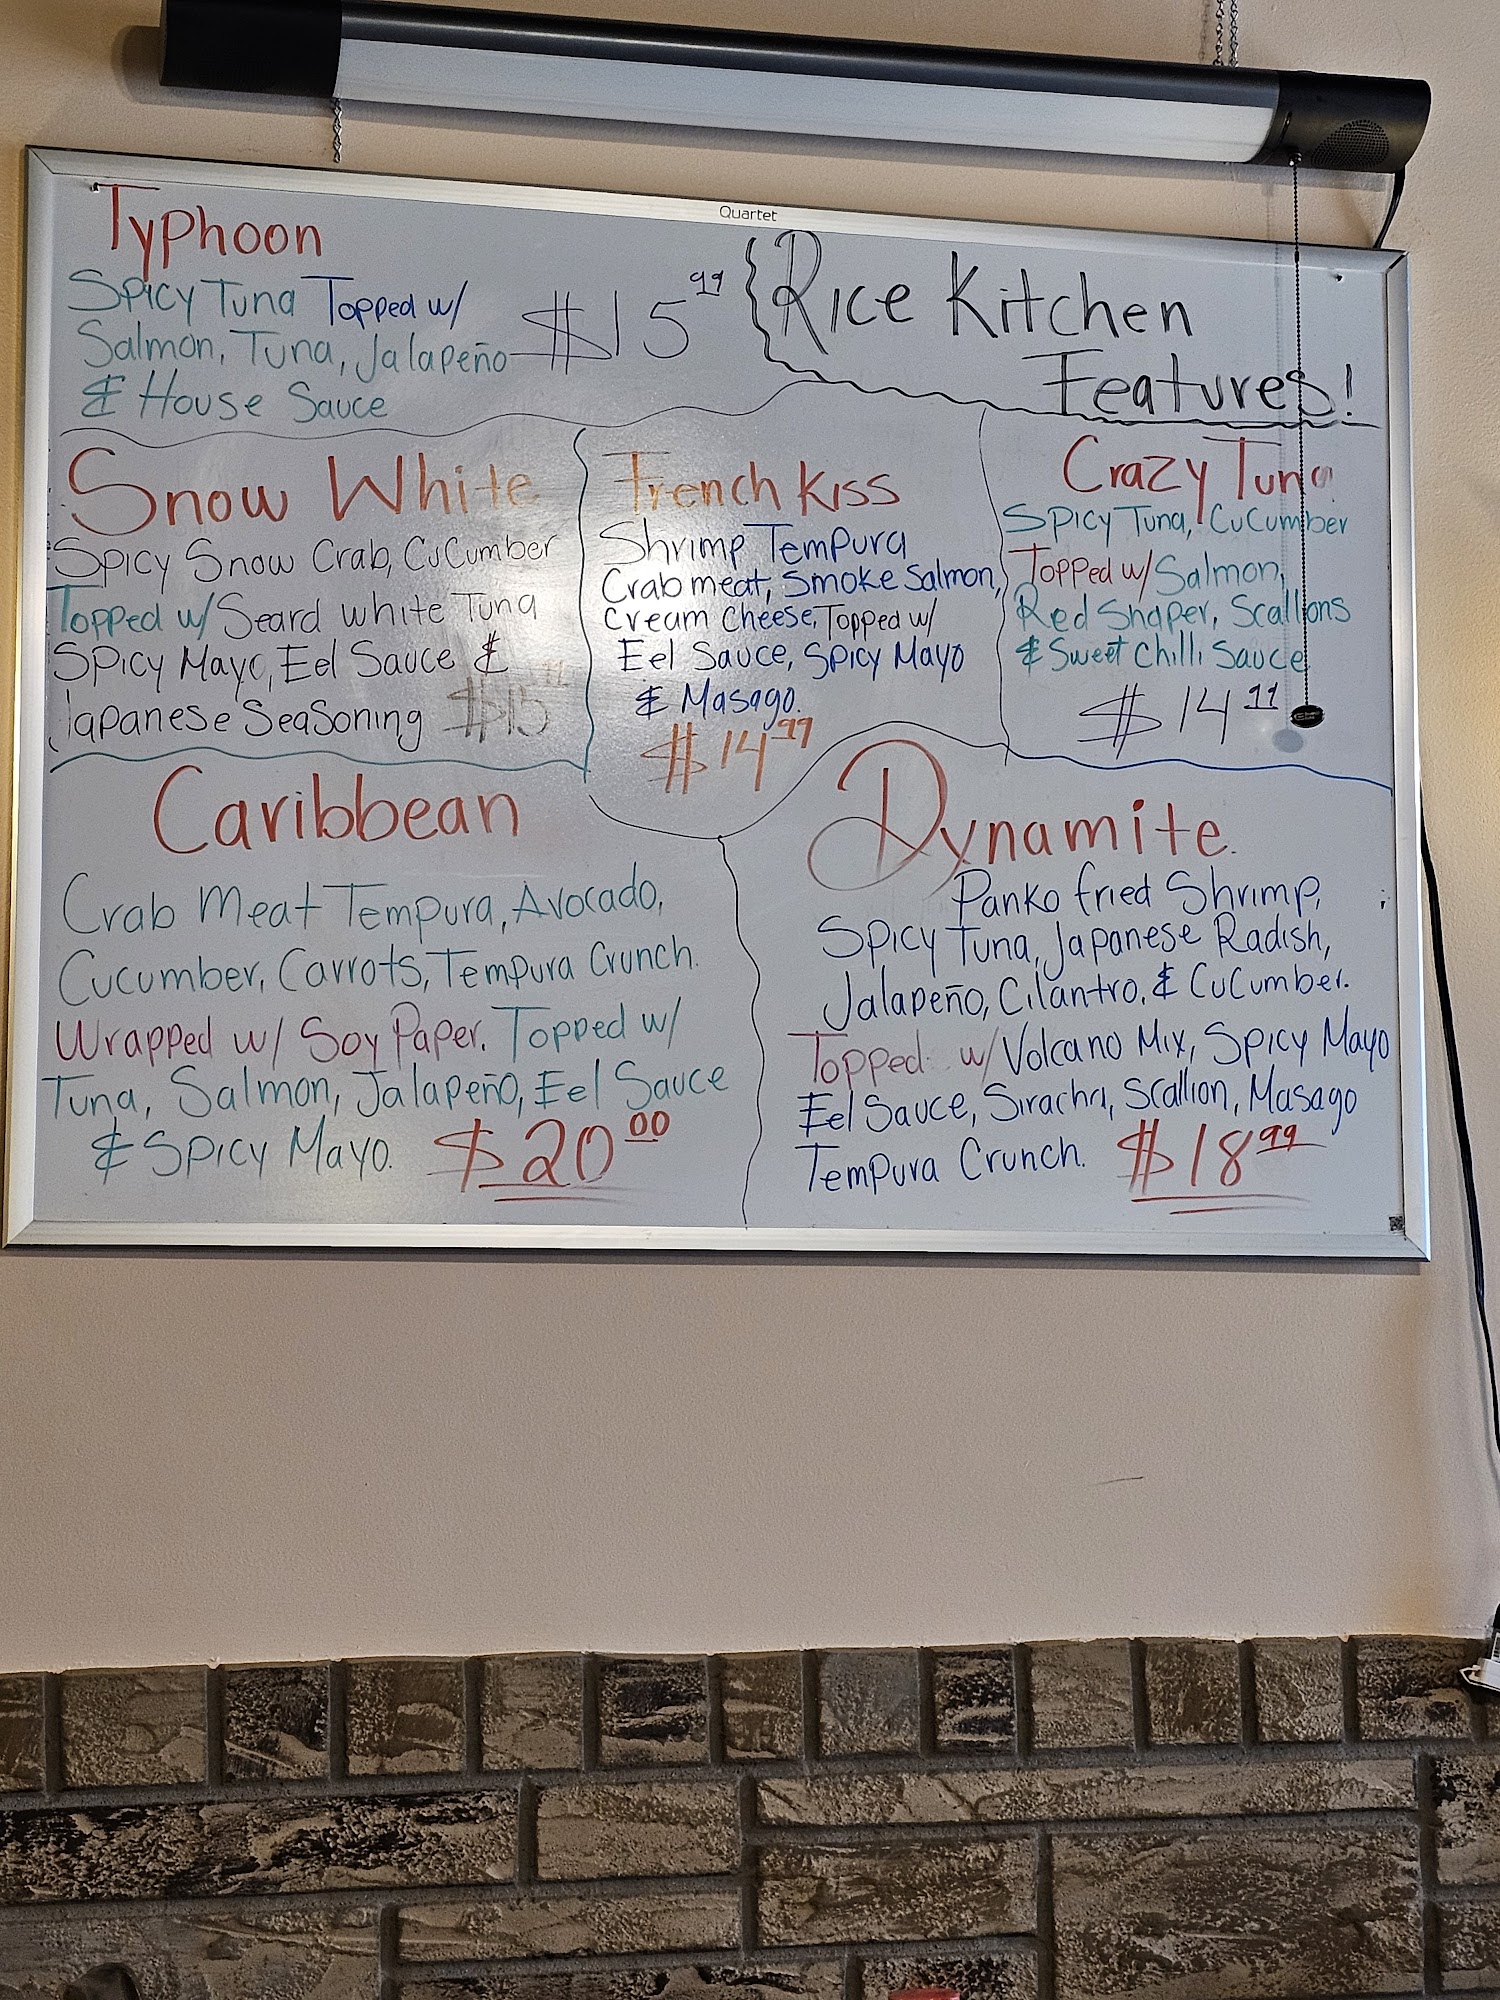 Quartet
Typhoon
Spicy Tuna Topped w/
Salmon, Tuna, Jalapeño
& House Sauce
$15 99
Rice Kitchen
Features!
Snow White
Spicy Snow Crab, Cucumber
Topped w/ Seard white Tuna
Spicy Mayo, Eel Sauce &
Japanese Seasoning $15
French Kiss
Shrimp Tempura
Crab meat, Smoke Salmon,
Cream Cheese, Topped w/
Eel Sauce, Spicy Mayo
& Masago.
$14 99
Crazy Tuna
Spicy Tuna, Cucumber
Topped w/ Salmon,
Red Snaper, Scallions
& Sweet Chilli Sauce
$14 99
Caribbean
Crab Meat Tempura, Avocado,
Cucumber, Carrots, Tempura Crunch.
Wrapped w/ Soy Paper. Topped w/
Tuna, Salmon, Jalapeño, Eel Sauce
& Spicy Mayo. $20 00
Dynamite
Panko fried Shrimp,
Spicy Tuna, Japanese Radish,
Jalapeño, Cilantro, & Cucumber.
Topped w/ Volcano Mix, Spicy Mayo
Eel Sauce, Siracha, Scallion, Masago
Tempura Crunch. $18 99